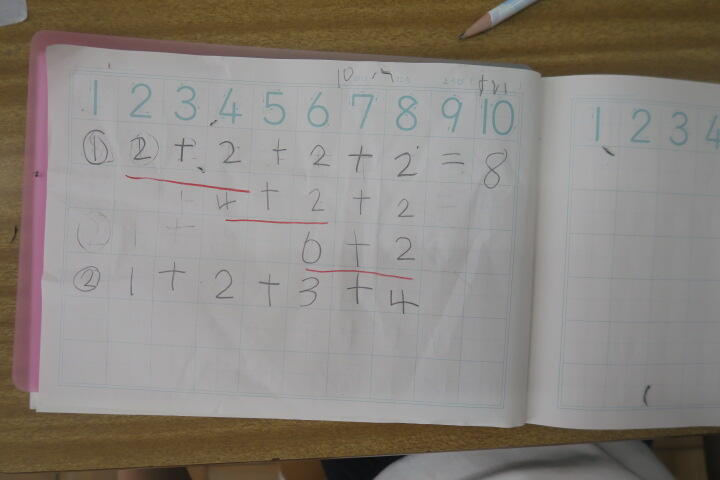 1 2 3 4 5 6 7 8 9 10
① 2 + 2 + 2 + 2 = 8
4 + 2 + 2
6 + 2
② 1 + 2 + 3 + 4
1 2 3 4